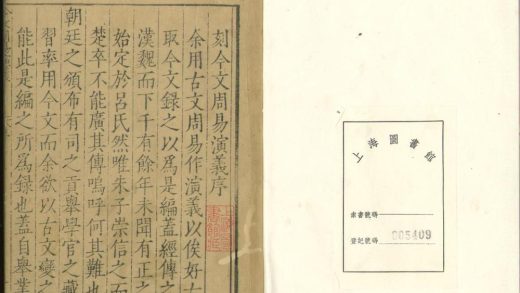 刻今文周易演義序
余用古文周易作演義以俟好古
取今文錄之以爲是編蓋經傳之
漢魏而下千有餘年未聞有正之
始定於呂氏然唯朱子崇信之而
楚卒不能廣其傳嗚呼何其難也
朝廷之頒布有司之貢舉學官之藏
習率用今文而余欲以古文變之
能此是編之所爲錄也蓋自舉業
上海圖書館
索書號碼
登記號碼 005409